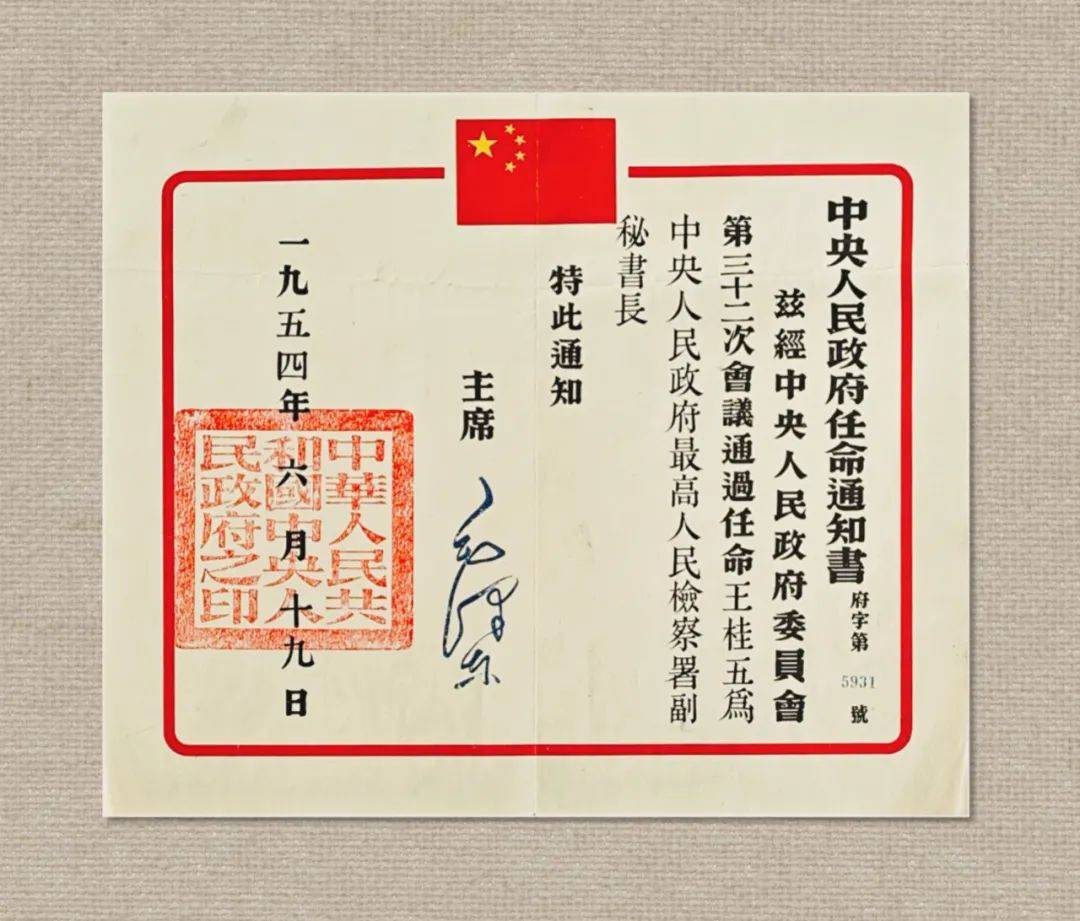 中央人民政府任命通知書
府字第5931號
茲經中央人民政府委員會
第三十二次會議通過任命王桂五爲
中央人民政府最高人民檢察署副
秘書長
特此通知
主席
毛澤東
一九五四年六月十九日
中華人民共
和國中央人
民政府之印